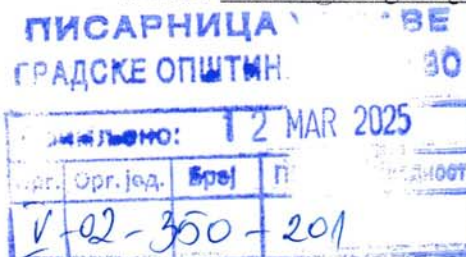 ПИСАРНИЦА ВЕ
ГРАДСКЕ ОПШТИН ВО
12 MAR 2025
Орг. јед. Број П
V-02-350-201